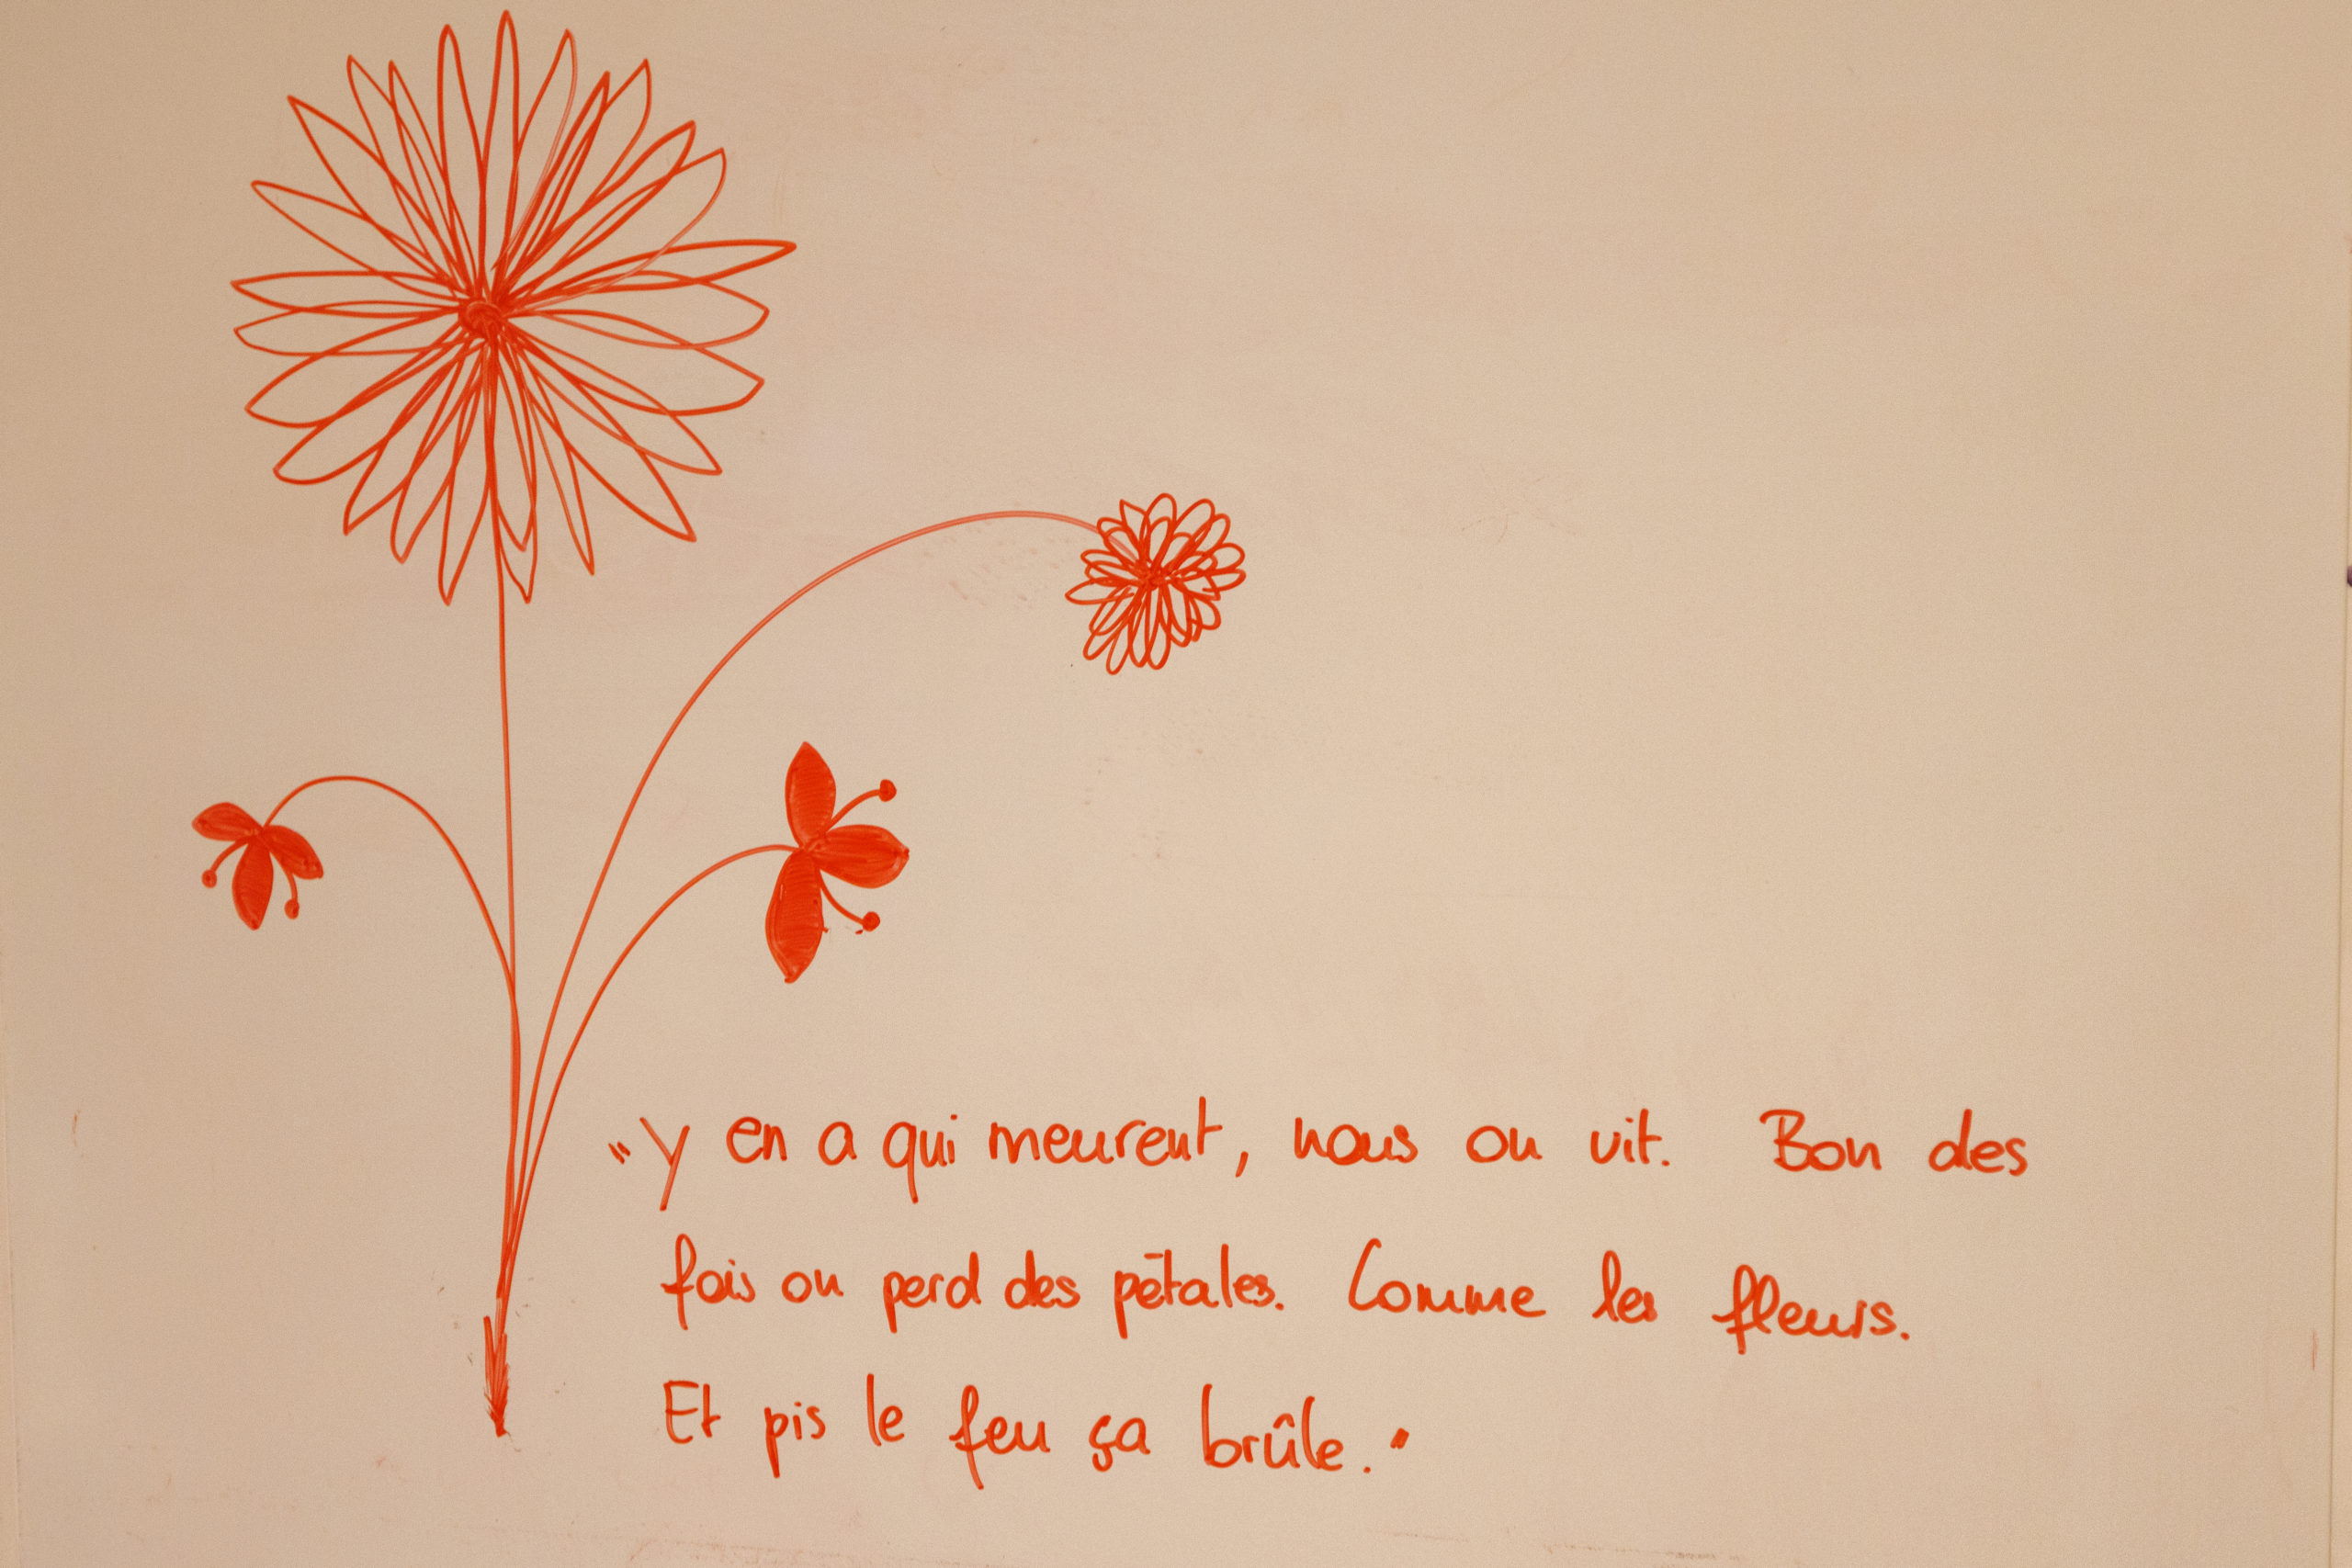 "Y en a qui meurent, nous on vit. Bon des
fois on perd des pétales. Comme les fleurs.
Et pis le feu ça brûle."